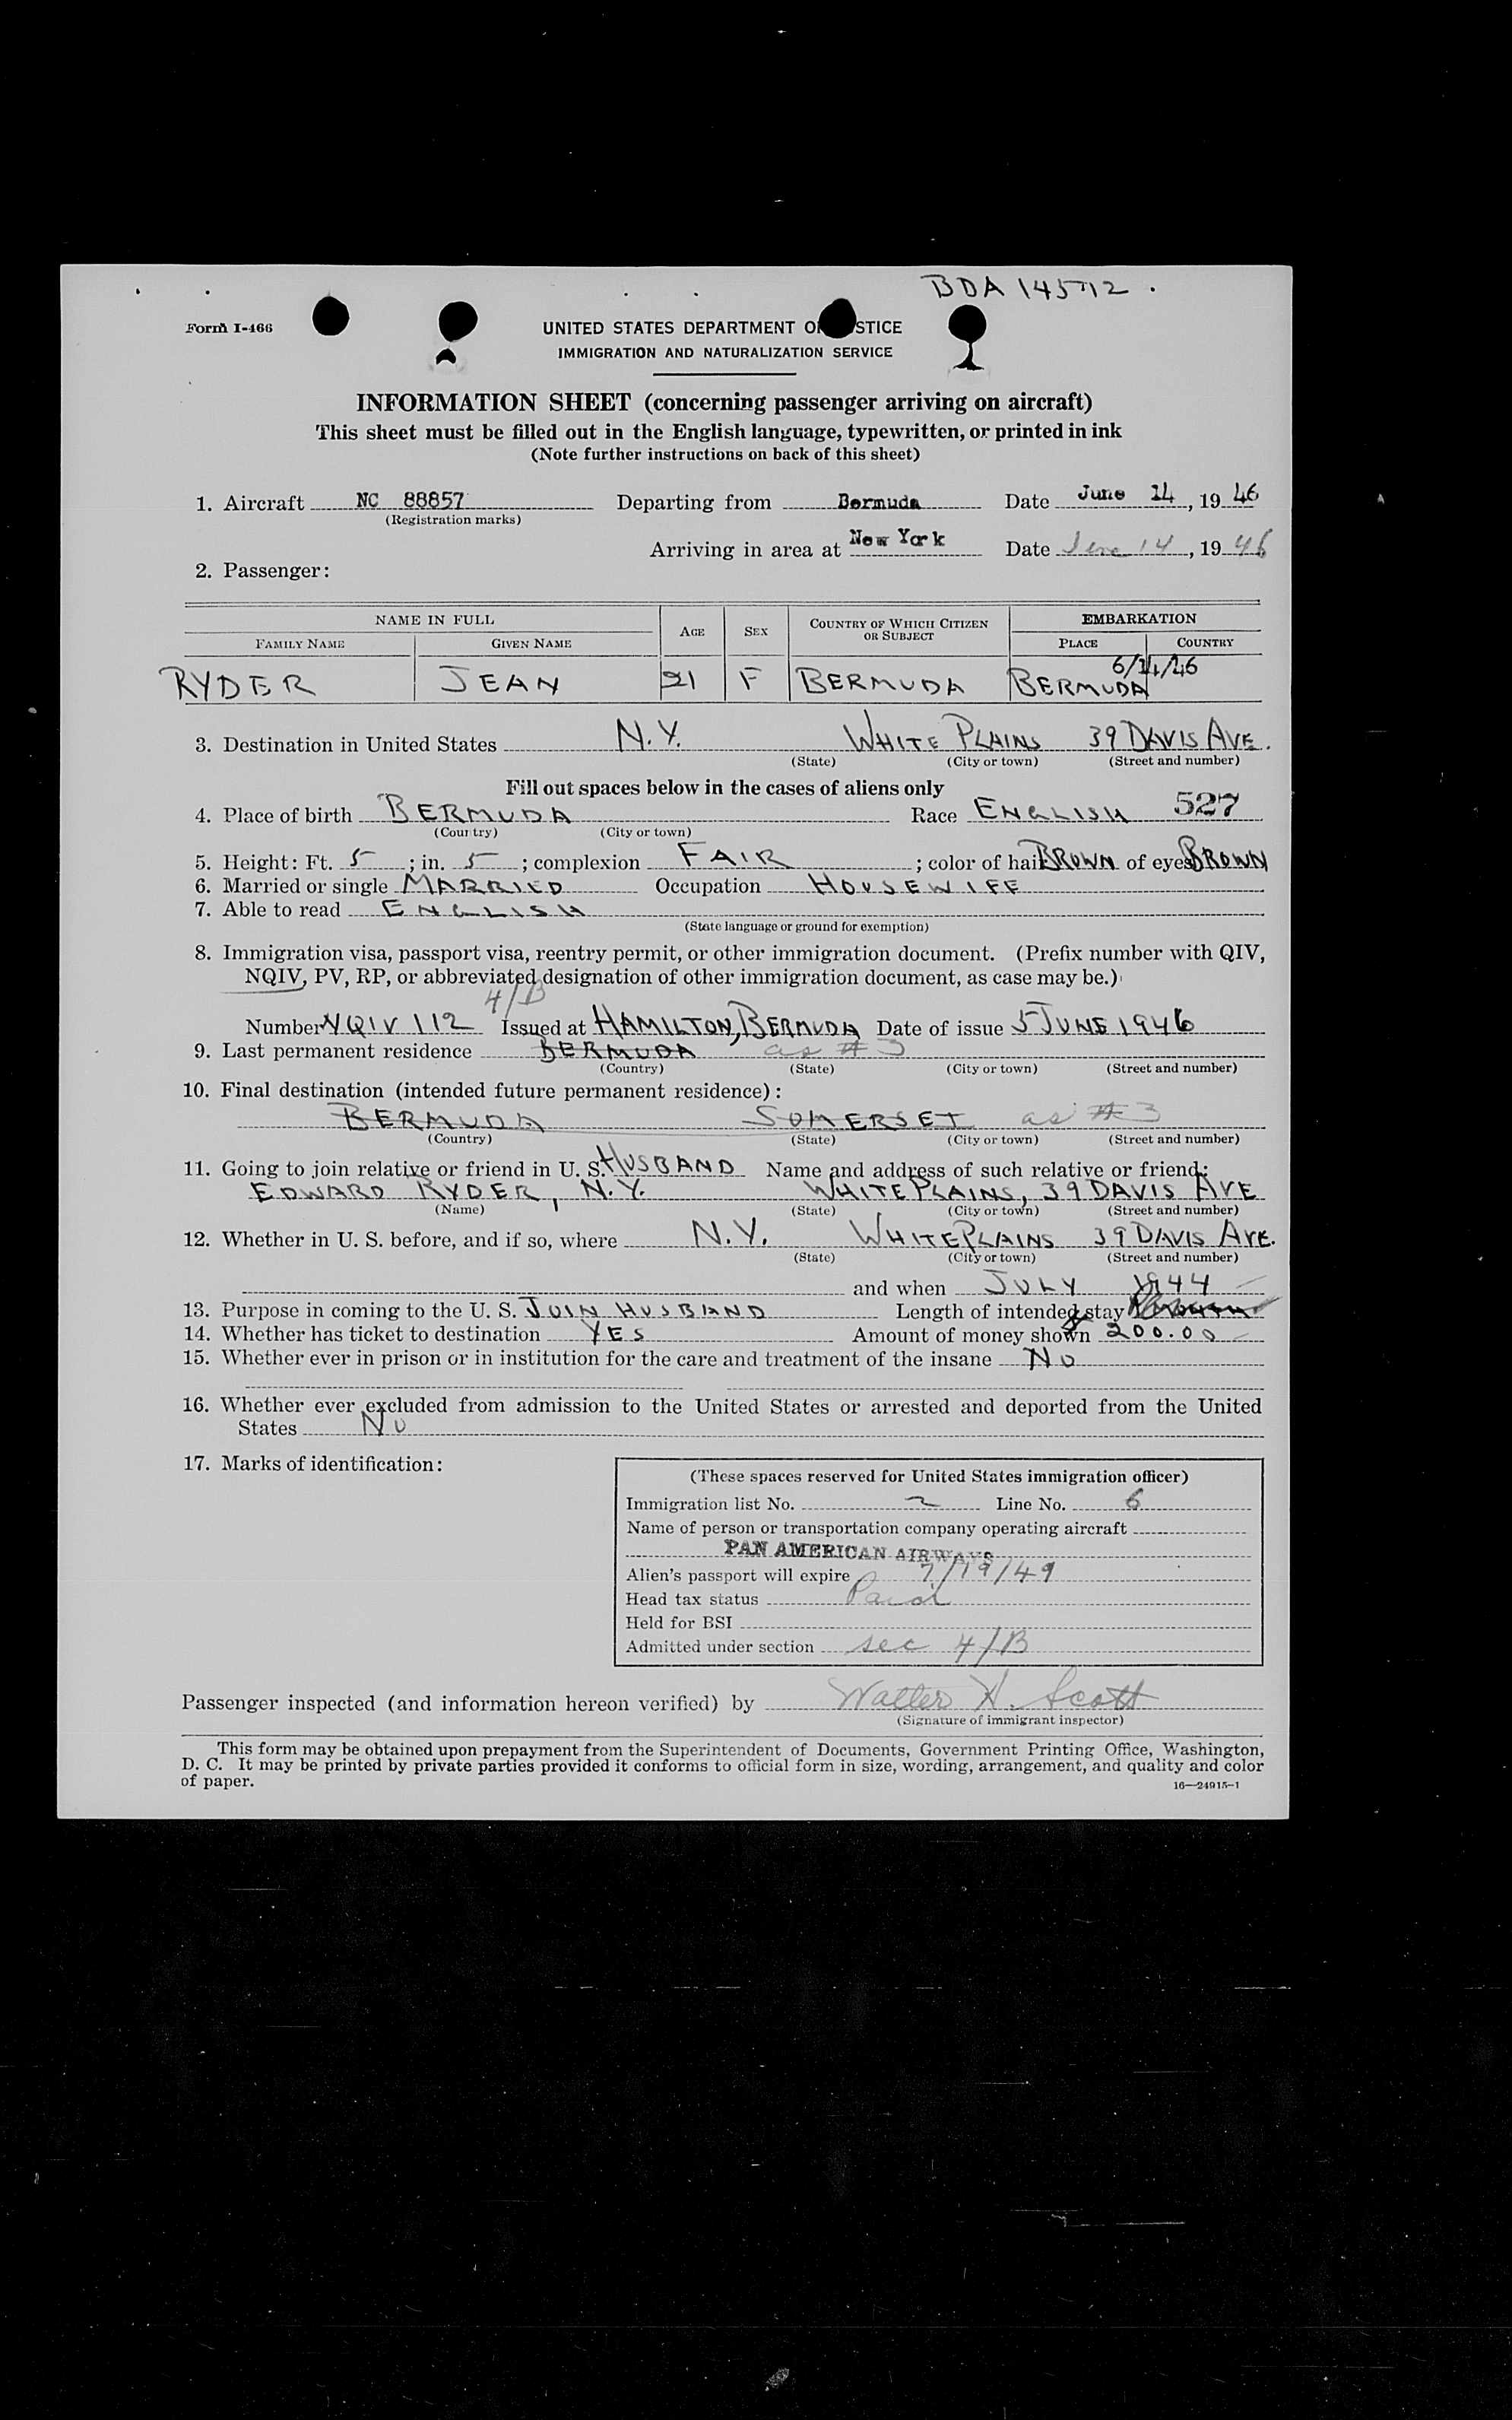 BDA 14512.
Form I-466
UNITED STATES DEPARTMENT OF JUSTICE
IMMIGRATION AND NATURALIZATION SERVICE
INFORMATION SHEET (concerning passenger arriving on aircraft)
This sheet must be filled out in the English language, typewritten, or printed in ink
(Note further instructions on back of this sheet)
1. Aircraft NC 88857 Departing from Bermuda Date June 14, 1946
(Registration marks)
Arriving in area at New York Date June 14, 1946
2. Passenger:
NAME IN FULL AGE SEX COUNTRY OF WHICH CITIZEN OR SUBJECT EMBARKATION
FAMILY NAME GIVEN NAME PLACE COUNTRY
6/14/46
RYDER JEAN 21 F BERMUDA BERMUDA
3. Destination in United States N.Y. WHITE PLAINS 39 DAVIS AVE.
(State) (City or town) (Street and number)
Fill out spaces below in the cases of aliens only
4. Place of birth BERMUDA Race ENGLISH 527
(Country) (City or town)
5. Height: Ft. 5; in. 5; complexion FAIR; color of hair BROWN of eyes BROWN
6. Married or single MARRIED Occupation HOUSEWIFE
7. Able to read ENGLISH
(State language or ground for exemption)
8. Immigration visa, passport visa, reentry permit, or other immigration document. (Prefix number with QIV,
NQIV, PV, RP, or abbreviated designation of other immigration document, as case may be.)
4/B
Number NQIV 112 Issued at HAMILTON, BERMUDA Date of issue 5 JUNE 1946
9. Last permanent residence BERMUDA as #3
(Country) (State) (City or town) (Street and number)
10. Final destination (intended future permanent residence):
BERMUDA SOMERSET as #3
(Country) (State) (City or town) (Street and number)
11. Going to join relative or friend in U. S. HUSBAND Name and address of such relative or friend:
EDWARD RYDER, N.Y. WHITE PLAINS, 39 DAVIS AVE
(Name) (State) (City or town) (Street and number)
12. Whether in U. S. before, and if so, where N.Y. WHITE PLAINS 39 DAVIS AVE.
(State) (City or town) (Street and number)
and when JULY 1944
13. Purpose in coming to the U. S. JOIN HUSBAND Length of intended stay
14. Whether has ticket to destination YES Amount of money shown 200.00
15. Whether ever in prison or in institution for the care and treatment of the insane NO
16. Whether ever excluded from admission to the United States or arrested and deported from the United
States NO
17. Marks of identification:
(These spaces reserved for United States immigration officer)
Immigration list No. 2 Line No. 6
Name of person or transportation company operating aircraft
PAN AMERICAN AIRWAYS
Alien's passport will expire 7/19/49
Head tax status Paid
Held for BSI
Admitted under section sec 4/B
Passenger inspected (and information hereon verified) by Walter H. Scott
(Signature of immigrant inspector)
This form may be obtained upon prepayment from the Superintendent of Documents, Government Printing Office, Washington,
D. C. It may be printed by private parties provided it conforms to official form in size, wording, arrangement, and quality and color
of paper.
16—24915-1